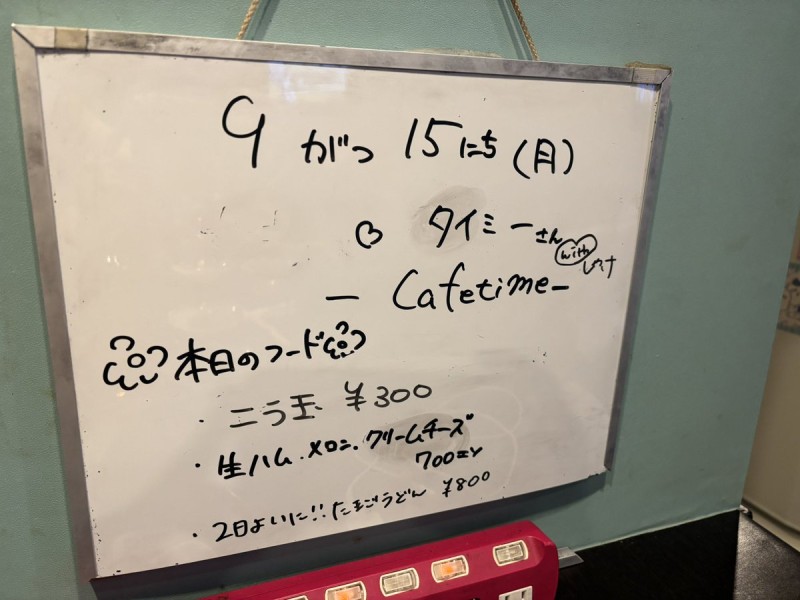 9がつ15にち(月)
♡ タイミーさん with
— Cafetime —
本日のフード
・ニラ玉 ¥300
・生ハム.メロン.クリームチーズ
700エン
・2日よいに!!たまごうどん ¥800